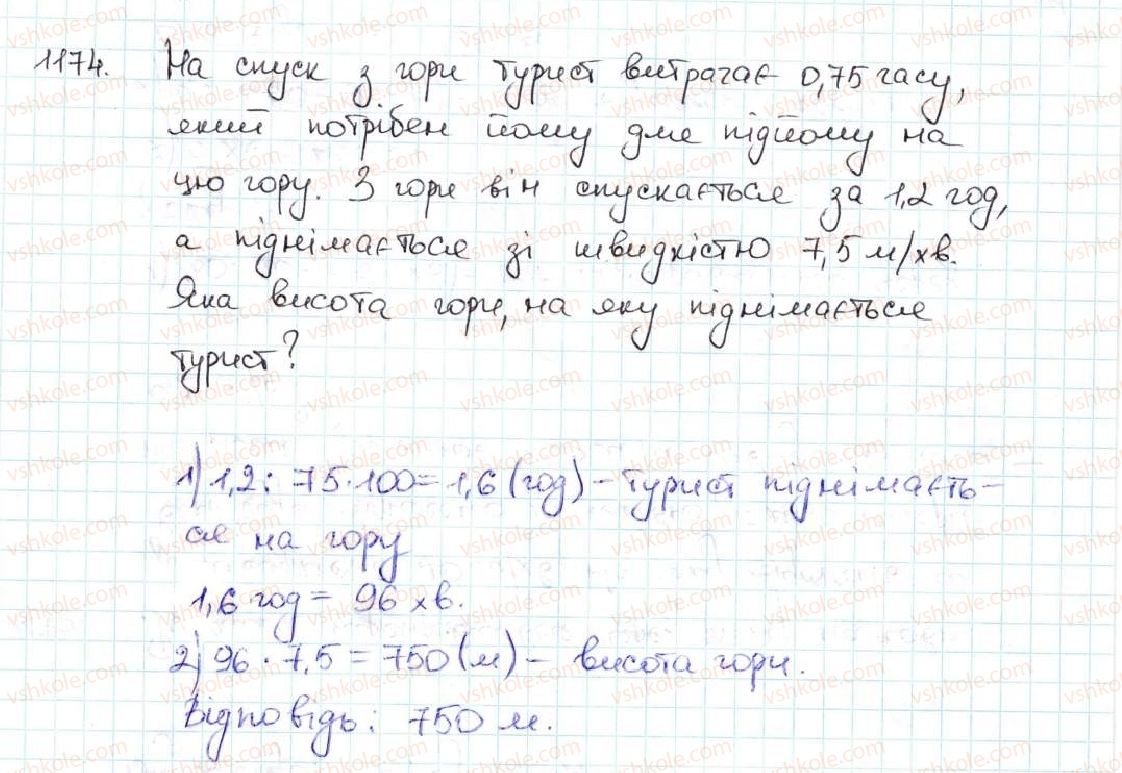 1174. На спуск з гори турист витрачає 0,75 часу,
який потрібен йому для підйому на
цю гору. З гори він спускається за 1,2 год,
а піднімається зі швидкістю 7,5 м/хв.
Яка висота гори, на яку піднімається
турист?
1) 1,2 : 75 · 100 = 1,6 (год) – турист піднімаєть-
ся на гору
1,6 год = 96 хв.
2) 96 · 7,5 = 750 (м) – висота гори.
Відповідь: 750 м.
vshkole.com